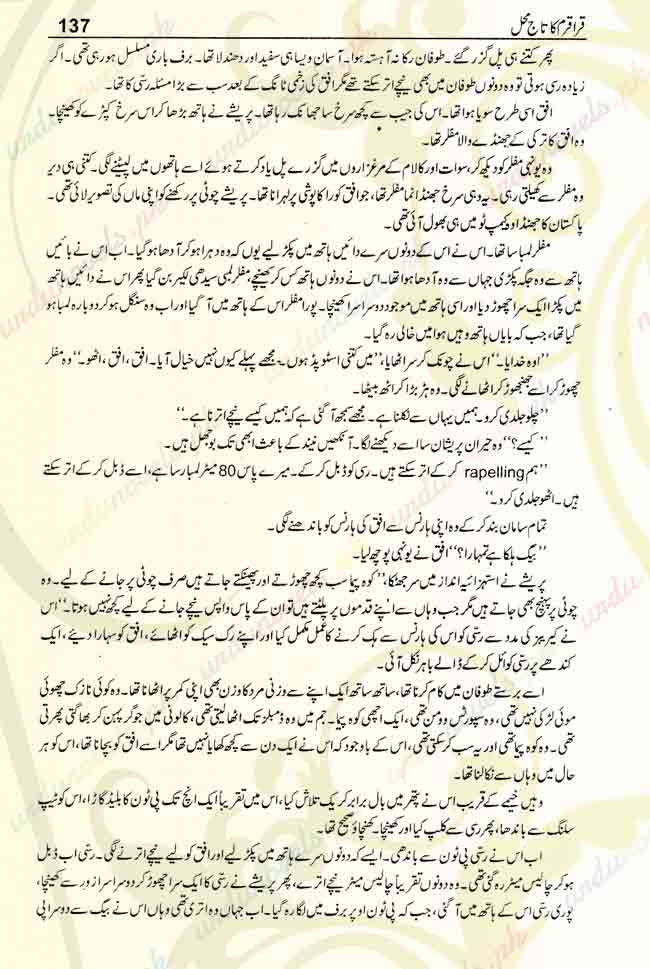 137
قراقرم کا تاج محل
پھر کتنے ہی پل گزر گئے۔ طوفان رکا نہ آہستہ ہوا۔ آسمان ویسا ہی سفید اور دھندلا تھا۔ برف باری مسلسل ہو رہی تھی۔ اگر
زیادہ رسی ہوتی تو وہ دونوں طوفان میں بھی نیچے اتر سکتے تھے مگر افق کی زخمی ٹانگ کے بعد سب سے بڑا مسئلہ رسی کا تھا۔
افق اسی طرح سویا ہوا تھا۔ اس کی جیب سے کچھ سرخ سا جھانک رہا تھا۔ پریشے نے ہاتھ بڑھا کر اس سرخ کپڑے کو کھینچا۔
وہ افق کا ترکی کے جھنڈے والا مفلر تھا۔
وہ یونہی مفلر کو دیکھ کر، سوات اور کالام کے مرغزاروں میں گزرے پل یاد کرتے ہوئے اسے ہاتھوں میں لپیٹنے لگی۔ کتنی ہی دیر
وہ مفلر سے کھیلتی رہی۔ یہ وہی سرخ جھنڈا نما مفلر تھا، جو افق کو راکاپوشی پر لہرانا تھا۔ پریشے چوٹی پر رکھنے کو اپنی ماں کی تصویر لائی تھی۔
پاکستان کا جھنڈا وہ کیمپ ٹو میں ہی بھول آئی تھی۔
مفلر لمبا سا تھا۔ اس نے اس کے دونوں سرے دائیں ہاتھ میں پکڑ لیے یوں کہ وہ دہرا ہو کر آدھا ہو گیا۔ اب اس نے بائیں
ہاتھ سے وہ جگہ پکڑی جہاں سے وہ آدھا ہوا تھا۔ اس نے دونوں ہاتھ کس کر کھینچے، مفلر لمبی سیدھی لکیر بن گیا پھر اس نے دائیں ہاتھ
میں پکڑا ایک سرا چھوڑ دیا اور اسی ہاتھ میں موجود دوسرا سرا کھینچا۔ پورا مفلر اس کے ہاتھ میں آ گیا اور اب وہ سنگل ہو کر دوبارہ لمبا ہو
گیا تھا، جب کہ بایاں ہاتھ وہیں ہوا میں خالی رہ گیا۔
"اوہ خدایا۔" اس نے چونک کر سر اٹھایا، "میں کتنی اسٹوپڈ ہوں۔ مجھے پہلے کیوں نہیں خیال آیا۔ افق، افق، اٹھو۔" وہ مفلر
چھوڑ کر اسے جھنجھوڑ کر اٹھانے لگی۔ وہ ہڑبڑا کر اٹھ بیٹھا۔
"چلو جلدی کرو۔ ہمیں یہاں سے نکلنا ہے۔ مجھے سمجھ آ گئی ہے کہ ہمیں کیسے نیچے اترنا ہے۔"
"کیسے؟" وہ حیران پریشان سا اسے دیکھنے لگا۔ آنکھیں نیند کے باعث ابھی تک بوجھل ہیں۔
"ہم rapelling کر کے اتر سکتے ہیں۔ رسی کو ڈبل کر کے۔ میرے پاس 80 میٹر لمبا رسا ہے، اسے ڈبل کر کے اتر سکتے
ہیں۔ اٹھو جلدی کرو۔"
تمام سامان بند کر کے وہ اپنی ہارنس سے افق کی ہارنس کو باندھنے لگی۔
"بیگ ہلکا ہے تمہارا؟" افق نے یونہی پوچھ لیا۔
پریشے نے استہزائیہ انداز میں سر جھٹکا، "کوہ پیما سب کچھ چھوڑتے اور پھینکتے جاتے ہیں صرف چوٹی پر جانے کے لیے۔ وہ
چوٹی پر پہنچ بھی جاتے ہیں مگر جب وہاں سے اپنے قدموں پر پلٹتے ہیں تو ان کے پاس واپس نیچے جانے کے لیے کچھ نہیں ہوتا۔" اس
نے کیریبنر کی مدد سے رسی کو اس کی ہارنس سے ہک کرنے کا عمل مکمل کیا اور اپنے رک سیک کو اٹھائے، افق کو سہارا دیئے، ایک
کندھے پر رسی کوائل کر کے ڈالے باہر نکل آئی۔
اسے برستے طوفان میں کام کرنا تھا، ساتھ ساتھ ایک اپنے سے وزنی مرد کا وزن بھی اپنی کمر پر اٹھانا تھا۔ وہ کوئی نازک چھوئی
موئی لڑکی نہیں تھی، وہ سپورٹس وومن تھی، ایک اچھی کوہ پیما۔ جم میں وہ ڈمبلز تک اٹھا لیتی تھی، کالونی میں جوگر پہن کر بھاگتی پھرتی
تھی۔ وہ کوہ پیما تھی اور یہ سب کر سکتی تھی، اس کے باوجود کہ اس نے ایک دن سے کچھ کھایا نہیں تھا مگر اسے افق کو بچانا تھا، اس کو ہر
حال میں وہاں سے نکالنا تھا۔
وہیں خیمے کے قریب اس نے پتھر میں بال برابر کریک تلاش کیا، اس میں تقریباً ایک انچ تک پی ٹون کا بلیڈ گاڑا، اس کو ٹیپ
سلنگ سے باندھا، پھر رسی سے کلپ کیا اور کھینچا۔ کھنچاؤ صحیح تھا۔
اب اس نے رسی پی ٹون سے باندھی۔ ایسے کہ دونوں سرے ہاتھ میں پکڑ لیے اور افق کو لیے نیچے اترنے لگی۔ رسی اب ڈبل
ہو کر چالیس میٹر رہ گئی تھی۔ وہ دونوں تقریباً چالیس میٹر نیچے اترے، پھر پریشے نے رسی کا ایک سرا چھوڑ کر دوسرا سرا زور سے کھینچا،
پوری رسی اس کے ہاتھ میں آ گئی، جب کہ پی ٹون اوپر برف میں لگا رہ گیا۔ اب جہاں وہ اتری تھی وہاں اس نے بیگ سے دوسرا پی